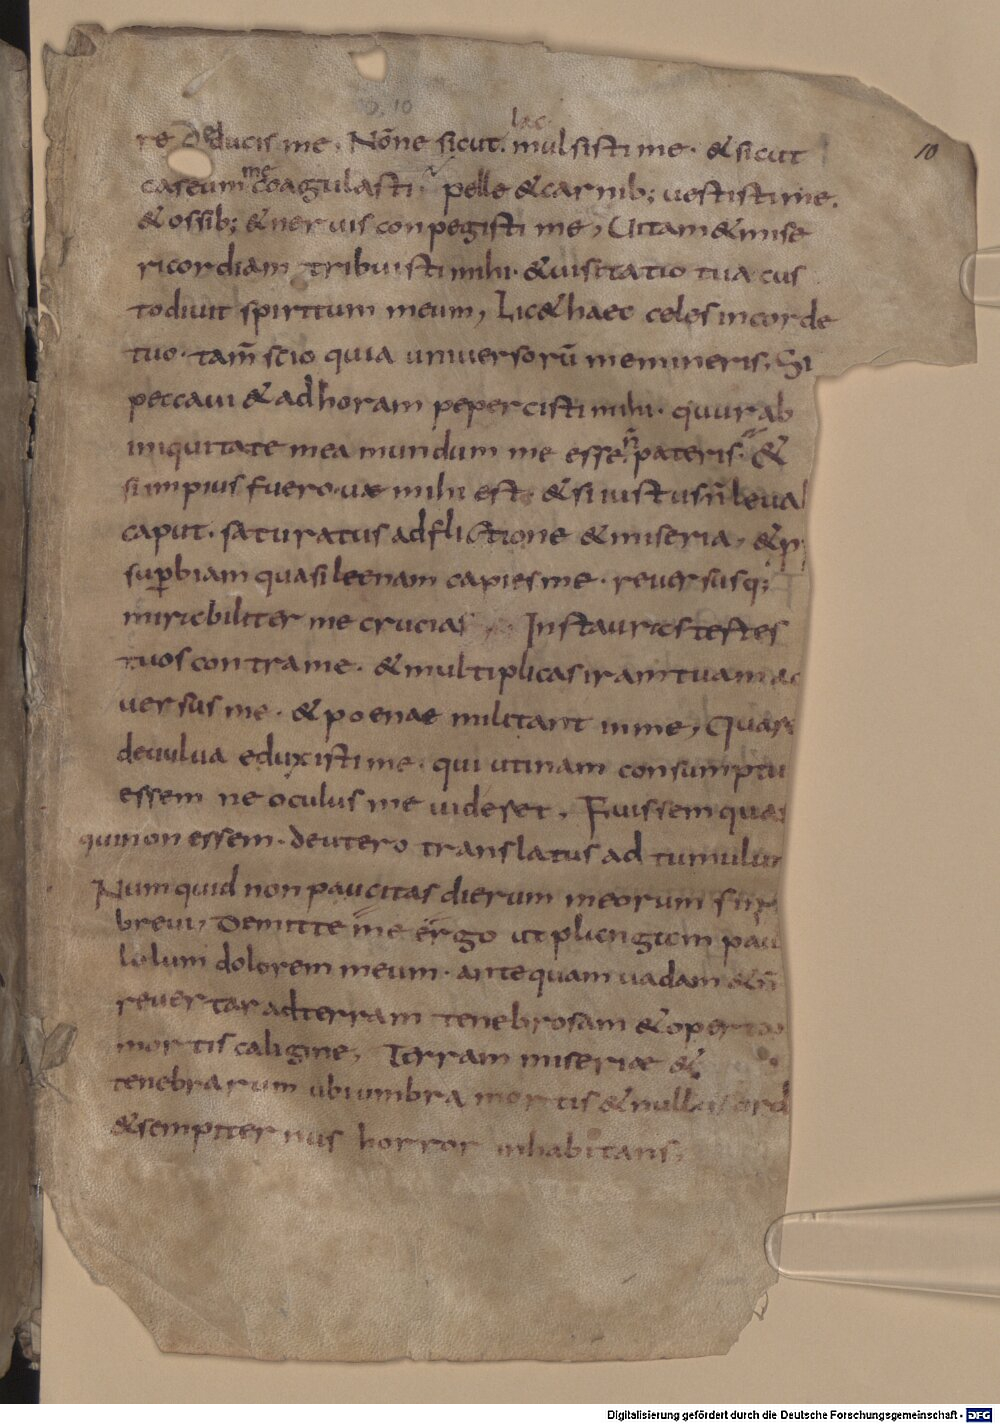 10, 10
10
lac
re deducis me. Nōne sicut mulsisti me. & sicut
caseum me coagulasti. pelle & carnib; uestisti me.
& ossib; & neruis conpegisti me, Uitam & mise
ricordiam tribuisti mihi. & uisitatio tua cus
todiuit spiritum meum, Lic& haec celes in corde
tuo. tam̄ scio quia uniuersorū memineris. Si
peccaui & ad horam pepercisti mihi. quur ab
iniquitate mea mundum me esse n̄ pateris. &
si impius fuero. uae mihi est. & si iustus n̄ leuab
caput. saturatus adflictione & miseria, & p
sup̱biam quasi leenam capies me. reuersusq;
mirabiliter me crucias Instauras testes
tuos contra me. & multiplicas iram tuam ad
uersus me. & poenae militant in me, Quare
de uulua eduxisti me. qui utinam consumptu
essem ne oculus me uideret. Fuissem quas
qui non essem. de utero translatus ad tumulum
Numquid non paucitas dierum meorum fin
breui, Demitte me ergo ut plangam pau
lolum dolorem meum. antequam uadam & n̄
reuertar ad terram tenebrosam & operta
mortis caligine, Terram miseriae &
tenebrarum ubi umbra mortis & nullus ord
& sempiternus horror inhabitans.
Digitalisierung gefördert durch die Deutsche Forschungsgemeinschaft - DFG